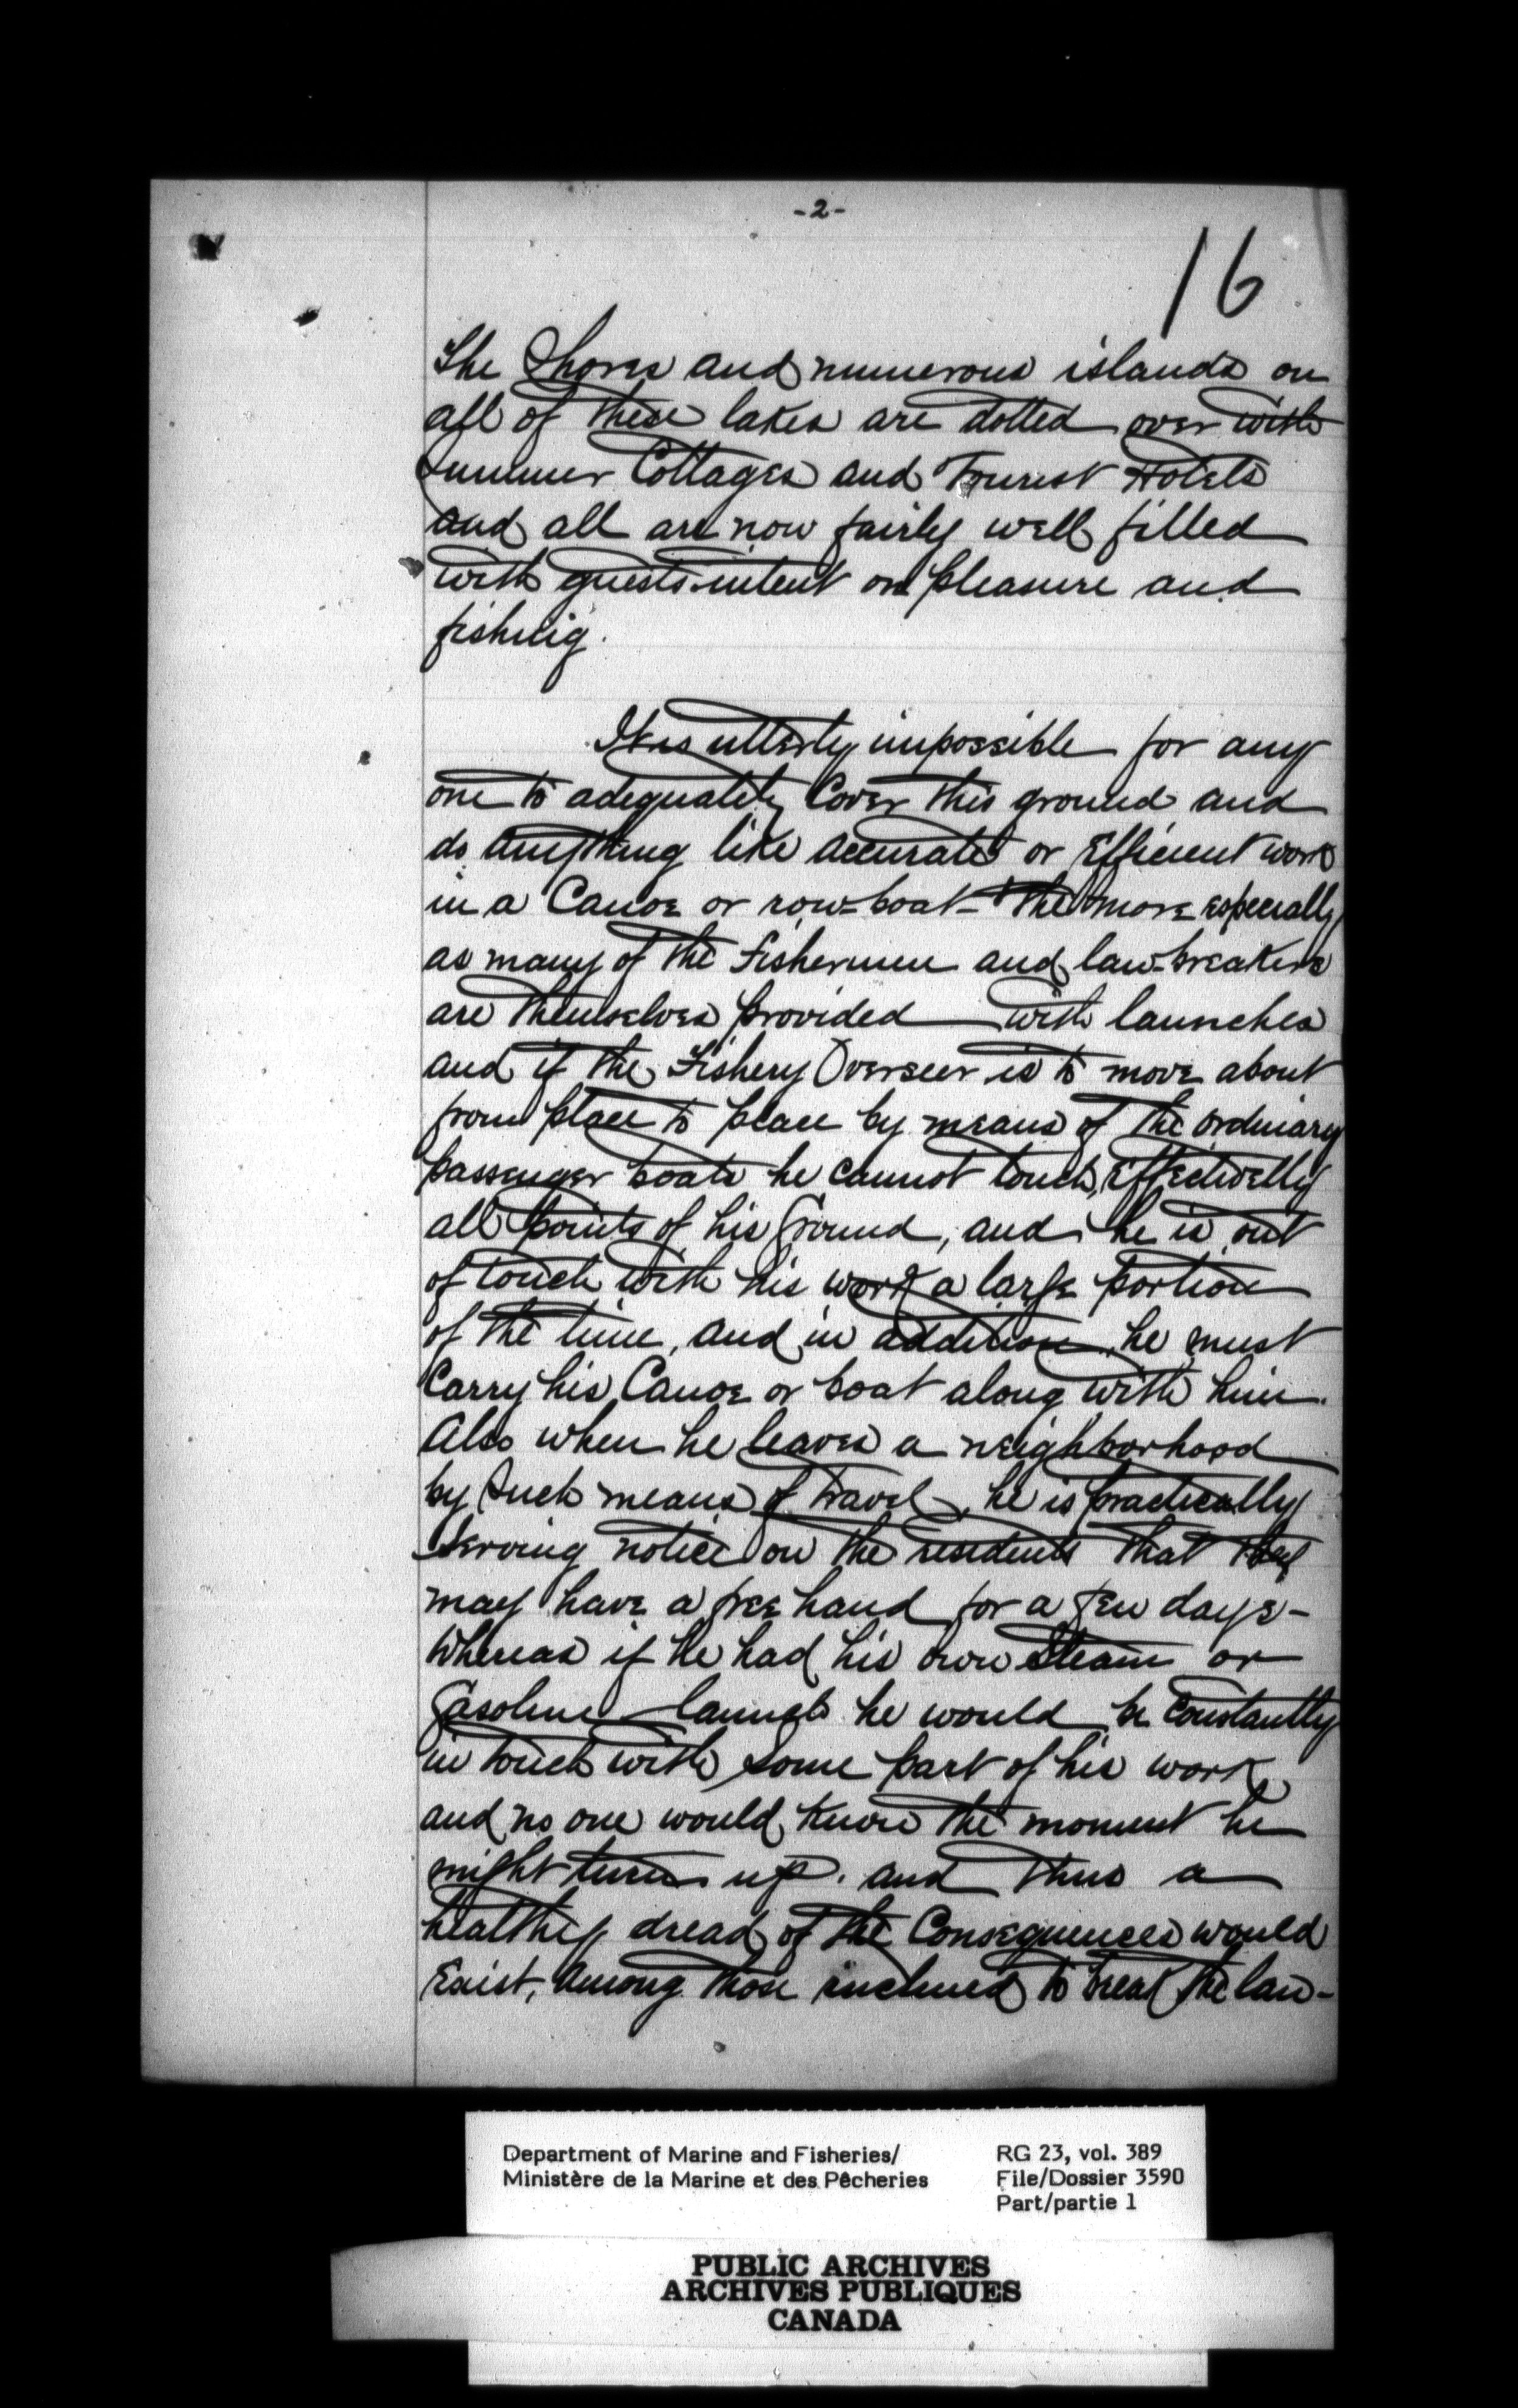 -2-
16
The Shores and numerous islands on
all of these lakes are dotted over with
Summer Cottages and Tourist Hotels
and all are now fairly well filled
with guests intent on pleasure and
fishing.
It is utterly impossible for any
one to adequately Cover this ground and
do anything like accurate or Efficient work
in a Canoe or row-boat - the more especially
as many of the Fishermen and law-breakers
are themselves provided with launches
and if the Fishery Overseer is to move about
from place to place by means of the ordinary
passenger boats he cannot touch, Effectivelly
all points of his Ground, and he is out
of touch with his work a large portion
of the time, and in addition, he must
Carry his Canoe or boat along with him.
Also when he leaves a neighborhood
by such means of travel, he is practically
Serving notice on the residents that they
may have a free hand for a few days -
Whereas if he had his own Steam or
Gasoline launch he would be Constantly
in touch with some part of his work,
and no one would know the moment he
might turn up. and thus a
healthy dread of the Consequences would
Exist, among those inclined to break the law -
Department of Marine and Fisheries/
Ministère de la Marine et des Pêcheries
RG 23, vol. 389
File/Dossier 3590
Part/partie 1
PUBLIC ARCHIVES
ARCHIVES PUBLIQUES
CANADA